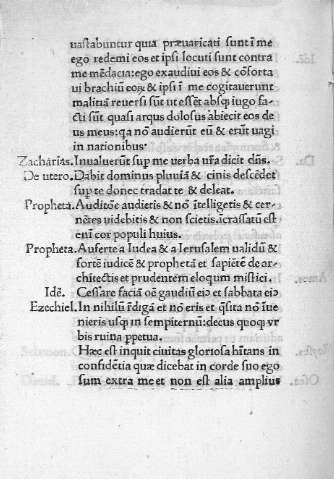 uastabuntur quia præuaricati sunt ĩ me
ego redemi eos et ipsi locuti sunt contra
me mẽdacia: ego exaudiui eos & cõforta
ui brachiũ eoꝝ & ipsi ĩ me cogitauerunt
malitiã reuersi sũt ut esset absqꝫ iugo fa
cti sũt quasi arqus dolosus abiecit eos de
us meus: qa nõ audierũt eũ & erũt uagi
in nationibus
Zacharias. Inualuerũt sup me uerba ur̃a dicit dñs.
De utero. Dabit dominus pluuiã & cinis descẽdet
sup te donec tradat te & deleat.
Propheta. Auditõe audietis & nõ itelligetis & cer-
nẽtes uidebitis & non scietis. icrassatũ est
eni cor populi huius.
Propheta. Auferte a Iudea & a Ierusalem ualidũ &
fortẽ iudicẽ & prophetã et sapiẽtẽ de ar-
chitectis et prudentem eloqum mistici.
Idẽ. Cessare faciã oẽ gaudiũ eiꝰ et sabbata eiꝰ
Ezechiel. In nihilũ rẽdigã et nõ eris et q̃sita nõ iue
nieris usqꝫ in sempiternũ: decus quoqꝫ ur
bis ruina ppetua.
Hæc est inquit ciuitas gloriosa hĩtans in
confidẽtia quæ dicebat in corde suo ego
sum extra me et non est alia amplius